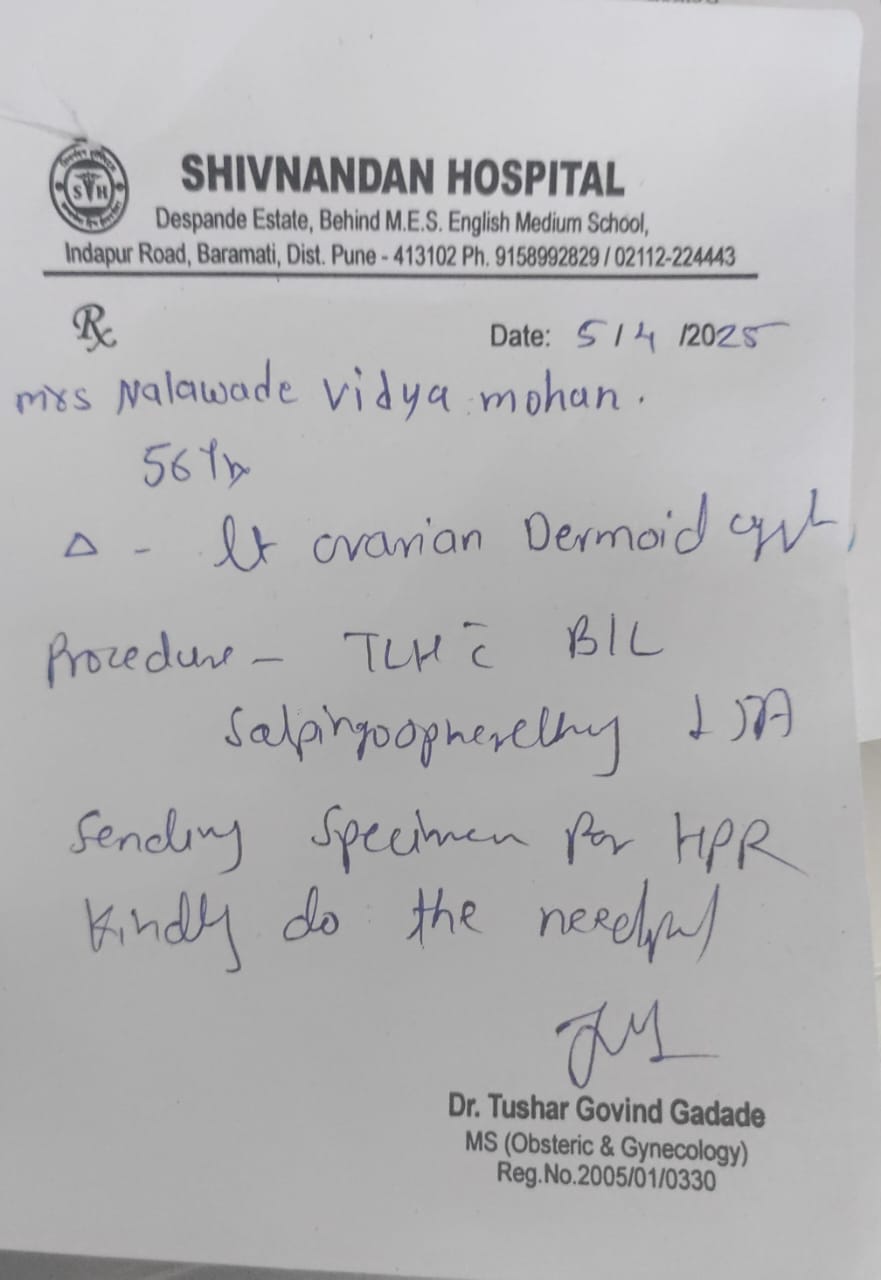 SHIVNANDAN HOSPITAL
Despande Estate, Behind M.E.S. English Medium School,
Indapur Road, Baramati, Dist. Pune - 413102 Ph. 9158992829 / 02112-224443
SVH
Rx
Date: 5/4/2025
mrs Nalawade Vidya mohan.
56 Yrs
Δ - lt ovarian Dermoid cyst
Procedure - TLH c̄ B/L
Salpingoopherectomy
Sending Specimen for HPR
Kindly do the needful
Dr. Tushar Govind Gadade
MS (Obsteric & Gynecology)
Reg.No.2005/01/0330